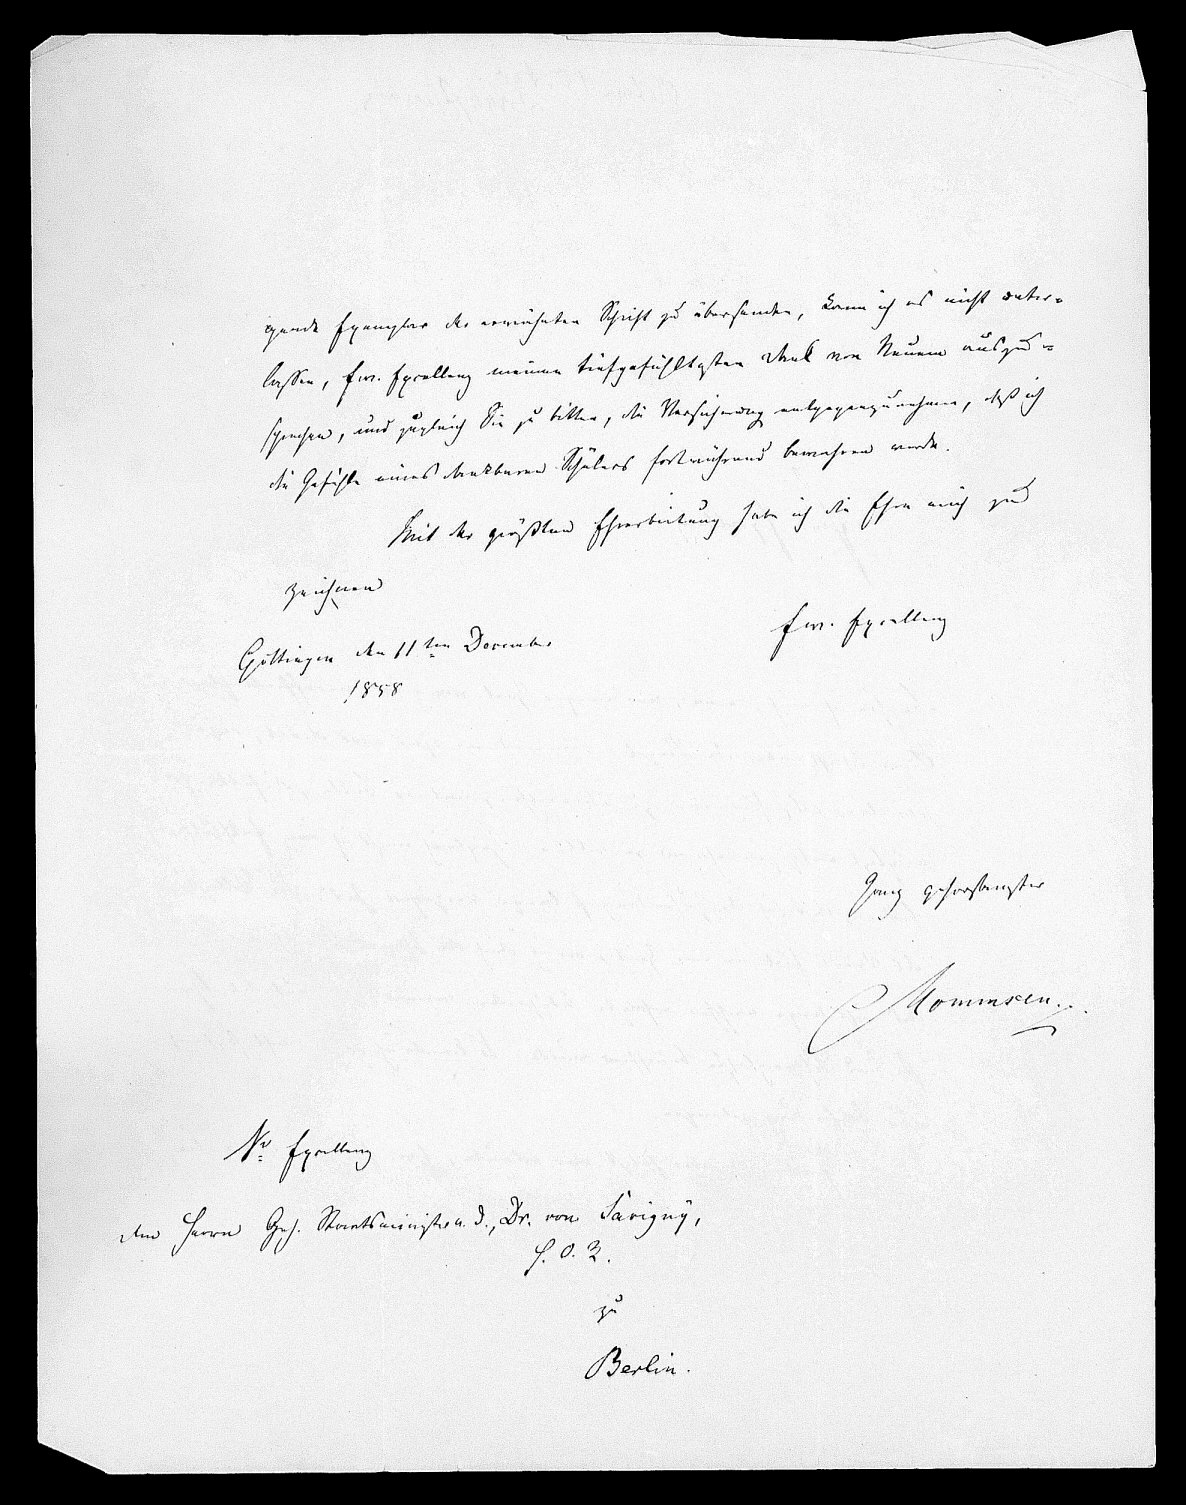 gende Exemplar der erwähnten Schrift zu übersenden, kann ich es nicht unter-
lassen, Ew. Excellenz meinen tiefgefühltesten Dank von Neuem auszu-
sprechen, und zugleich Sie zu bitten, die Versicherung entgegenzunehmen, daß ich
die Gefühle eines dankbaren Schülers fortwährend bewahren werde.
Mit der größten Ehrerbietung habe ich die Ehre mich zu
zeichnen
Ew. Excellenz
Göttingen den 11ten December
1858
Ganz gehorsamster
Mommsen.
Sr Excellenz
dem Herrn Geh. Staatsminister a. D., Dr. von Savigny,
H. O. R.
zu
Berlin.